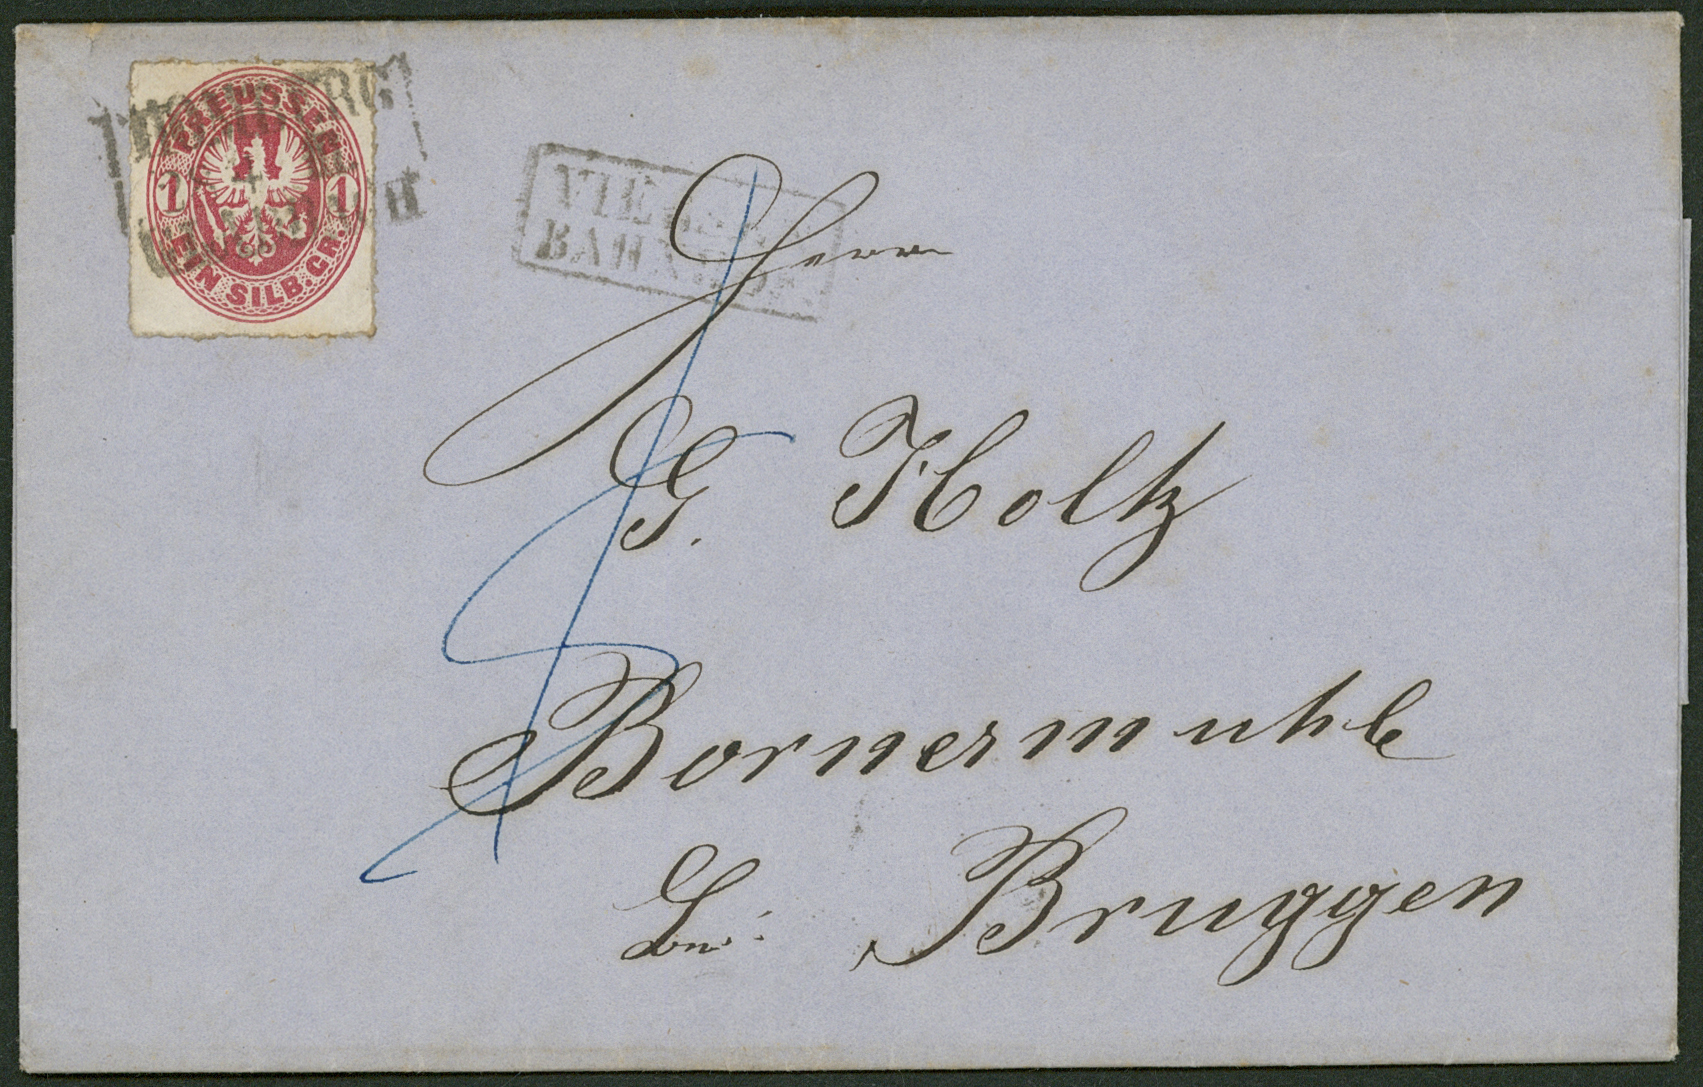 PREUSSEN
1 1
EIN SILB.GR.
VIERSEN
BAHNHOF.
Herrn
G. Holtz
Bornermuhle
bei Bruggen